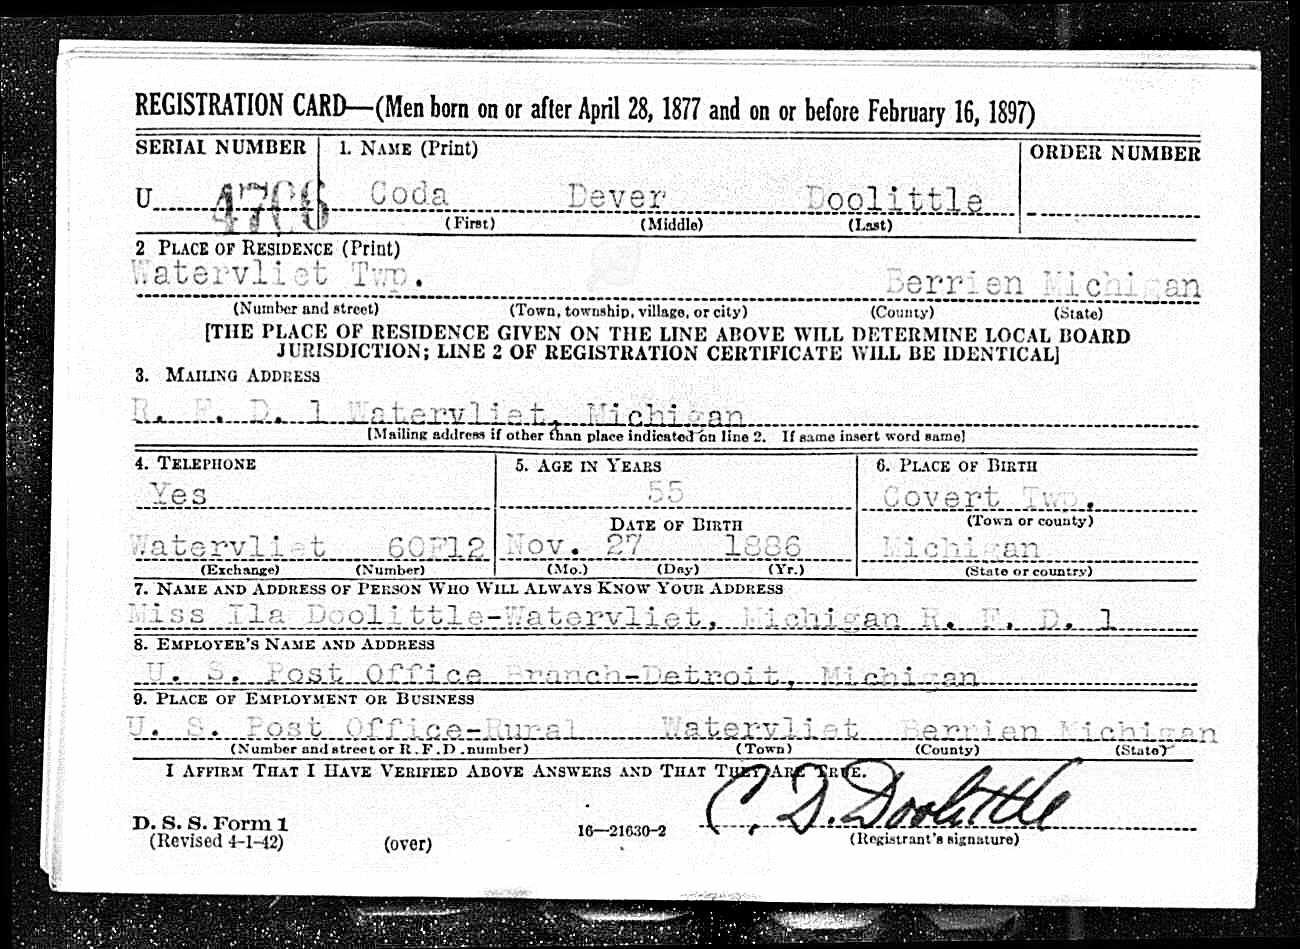 REGISTRATION CARD—(Men born on or after April 28, 1877 and on or before February 16, 1897)
SERIAL NUMBER 1. NAME (Print) ORDER NUMBER
U 4706 Coda Dever Doolittle
(First) (Middle) (Last)
2 PLACE OF RESIDENCE (Print)
Watervliet Twp. Berrien Michigan
(Number and street) (Town, township, village, or city) (County) (State)
[THE PLACE OF RESIDENCE GIVEN ON THE LINE ABOVE WILL DETERMINE LOCAL BOARD
JURISDICTION; LINE 2 OF REGISTRATION CERTIFICATE WILL BE IDENTICAL]
3. MAILING ADDRESS
R. F. D. 1 Watervliet, Michigan
[Mailing address if other than place indicated on line 2. If same insert word same]
4. TELEPHONE 5. AGE IN YEARS 6. PLACE OF BIRTH
Yes 55 Covert Twp.
DATE OF BIRTH (Town or county)
Watervliet 60F12 Nov. 27 1886 Michigan
(Exchange) (Number) (Mo.) (Day) (Yr.) (State or country)
7. NAME AND ADDRESS OF PERSON WHO WILL ALWAYS KNOW YOUR ADDRESS
Miss Ila Doolittle-Watervliet, Michigan R. F. D. 1
8. EMPLOYER'S NAME AND ADDRESS
U. S. Post Office Branch-Detroit, Michigan
9. PLACE OF EMPLOYMENT OR BUSINESS
U. S. Post Office-Rural Watervliet Berrien Michigan
(Number and street or R. F. D. number) (Town) (County) (State)
I AFFIRM THAT I HAVE VERIFIED ABOVE ANSWERS AND THAT THEY ARE TRUE.
C. D. Doolittle
D. S. S. Form 1
(Revised 4-1-42) (over) 16—21630-2 (Registrant's signature)